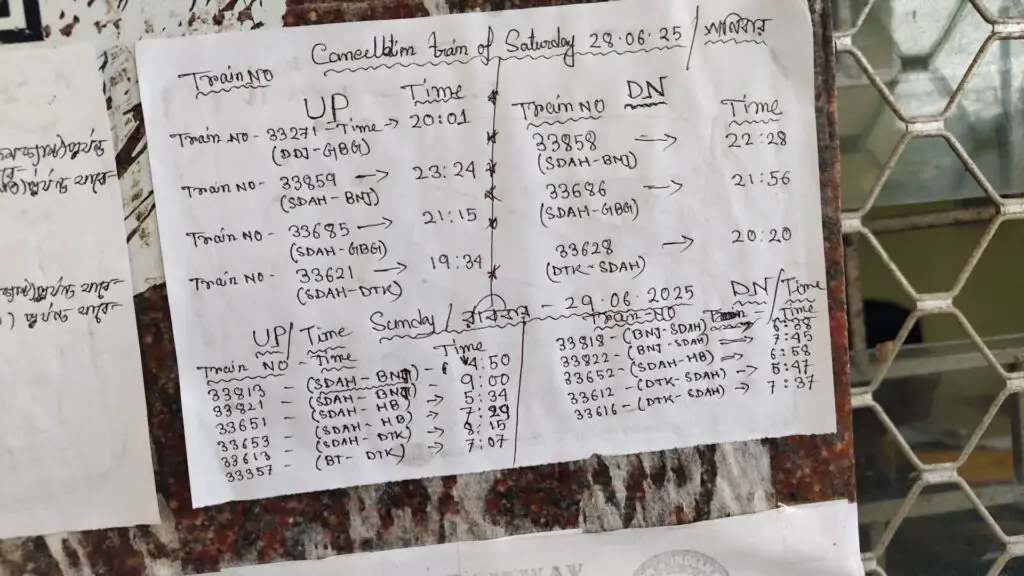 Cancelldim train of Saturday 28.06.25 / শনিবার
Train NO
UP
Time
Train NO - 33271 - Time → 20:01
(DDJ-GBG)
Train NO - 33859 → 23:24
(SDAH-BNJ)
Train NO - 33685 → 21:15
(SDAH-GBG)
Train NO - 33621 → 19:34
(SDAH-DTK)
DN
Train NO
Time
33858 → 22:28
(SDAH-BNJ)
33686 → 21:56
(SDAH-GBG)
33628 → 20:20
(DTK-SDAH)
Sunday / রবিবার - 29.06.2025
UP / Time
Train NO - Time
Time
33813 - (SDAH-BNJ) - 4:50
33821 - (SDAH-BNJ) - 9:00
33651 - (SDAH-HB) → 5:34
33653 - (SDAH-HB) → 7:29
33613 - (SDAH-DTK) → 8:15
33357 - (BT-DTK) → 7:07
DN / Time
Train NO
Time
33818 - (BNJ-SDAH) → 6:38
33822 - (BNJ-SDAH) → 7:45
33652 - (SDAH-HB) → 6:58
33612 - (DTK-SDAH) → 5:47
33616 - (DTK-SDAH) → 7:37